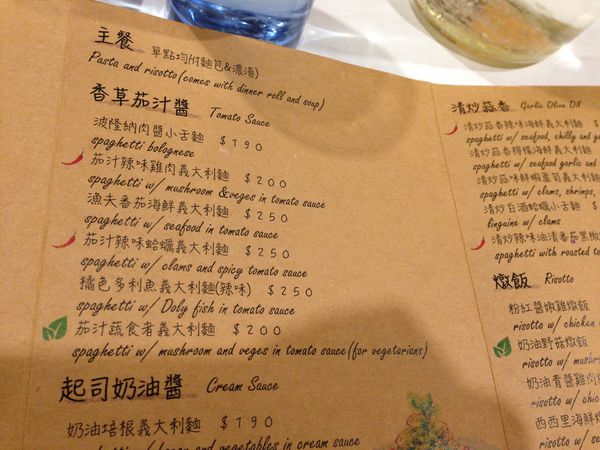 主餐 單點均附麵包&濃湯)
Pasta and risotto (comes with dinner roll and soup)
香草茄汁醬 Tomato Sauce
波隆納肉醬小舌麵 $190
spaghetti bolognese
茄汁辣味雞肉義大利麵 $200
spaghetti w/ mushroom &veges in tomato sauce
漁夫番茄海鮮義大利麵 $250
spaghetti w/ seafood in tomato sauce
茄汁辣味蛤蠣義大利麵 $250
spaghetti w/ clams and spicy tomato sauce
橘色多利魚義大利麵(辣味) $250
spaghetti w/ Doly fish in tomato sauce
茄汁蔬食者義大利麵 $200
spaghetti w/ mushroom and veges in tomato sauce (for vegetarians)
起司奶油醬 Cream Sauce
奶油培根義大利麵 $190
and vegetables in cream sauce
清炒蒜香 Garlic Olive Oil
清炒蒜香辣味海鮮義大利麵 $
spaghetti w/ seafood, chilly and g
清炒蒜香檸檬海鮮義大利
spaghetti w/ seafood garlic and
清炒蒜味鮮蝦蘆筍義大利麵
spaghetti w/ clams, shrimps,
清炒白酒蛤蠣小舌麵 $
linguine w/ clams
清炒辣味油漬番茄黑橄
spaghetti with roasted to
燉飯 Risotto
粉紅醬嫩雞燉飯
risotto w/ chicken
奶油野菇燉飯
risotto w/ mushr
奶油青醬雞肉
risotto w/ chic
西西里海鮮
risotto w/ se